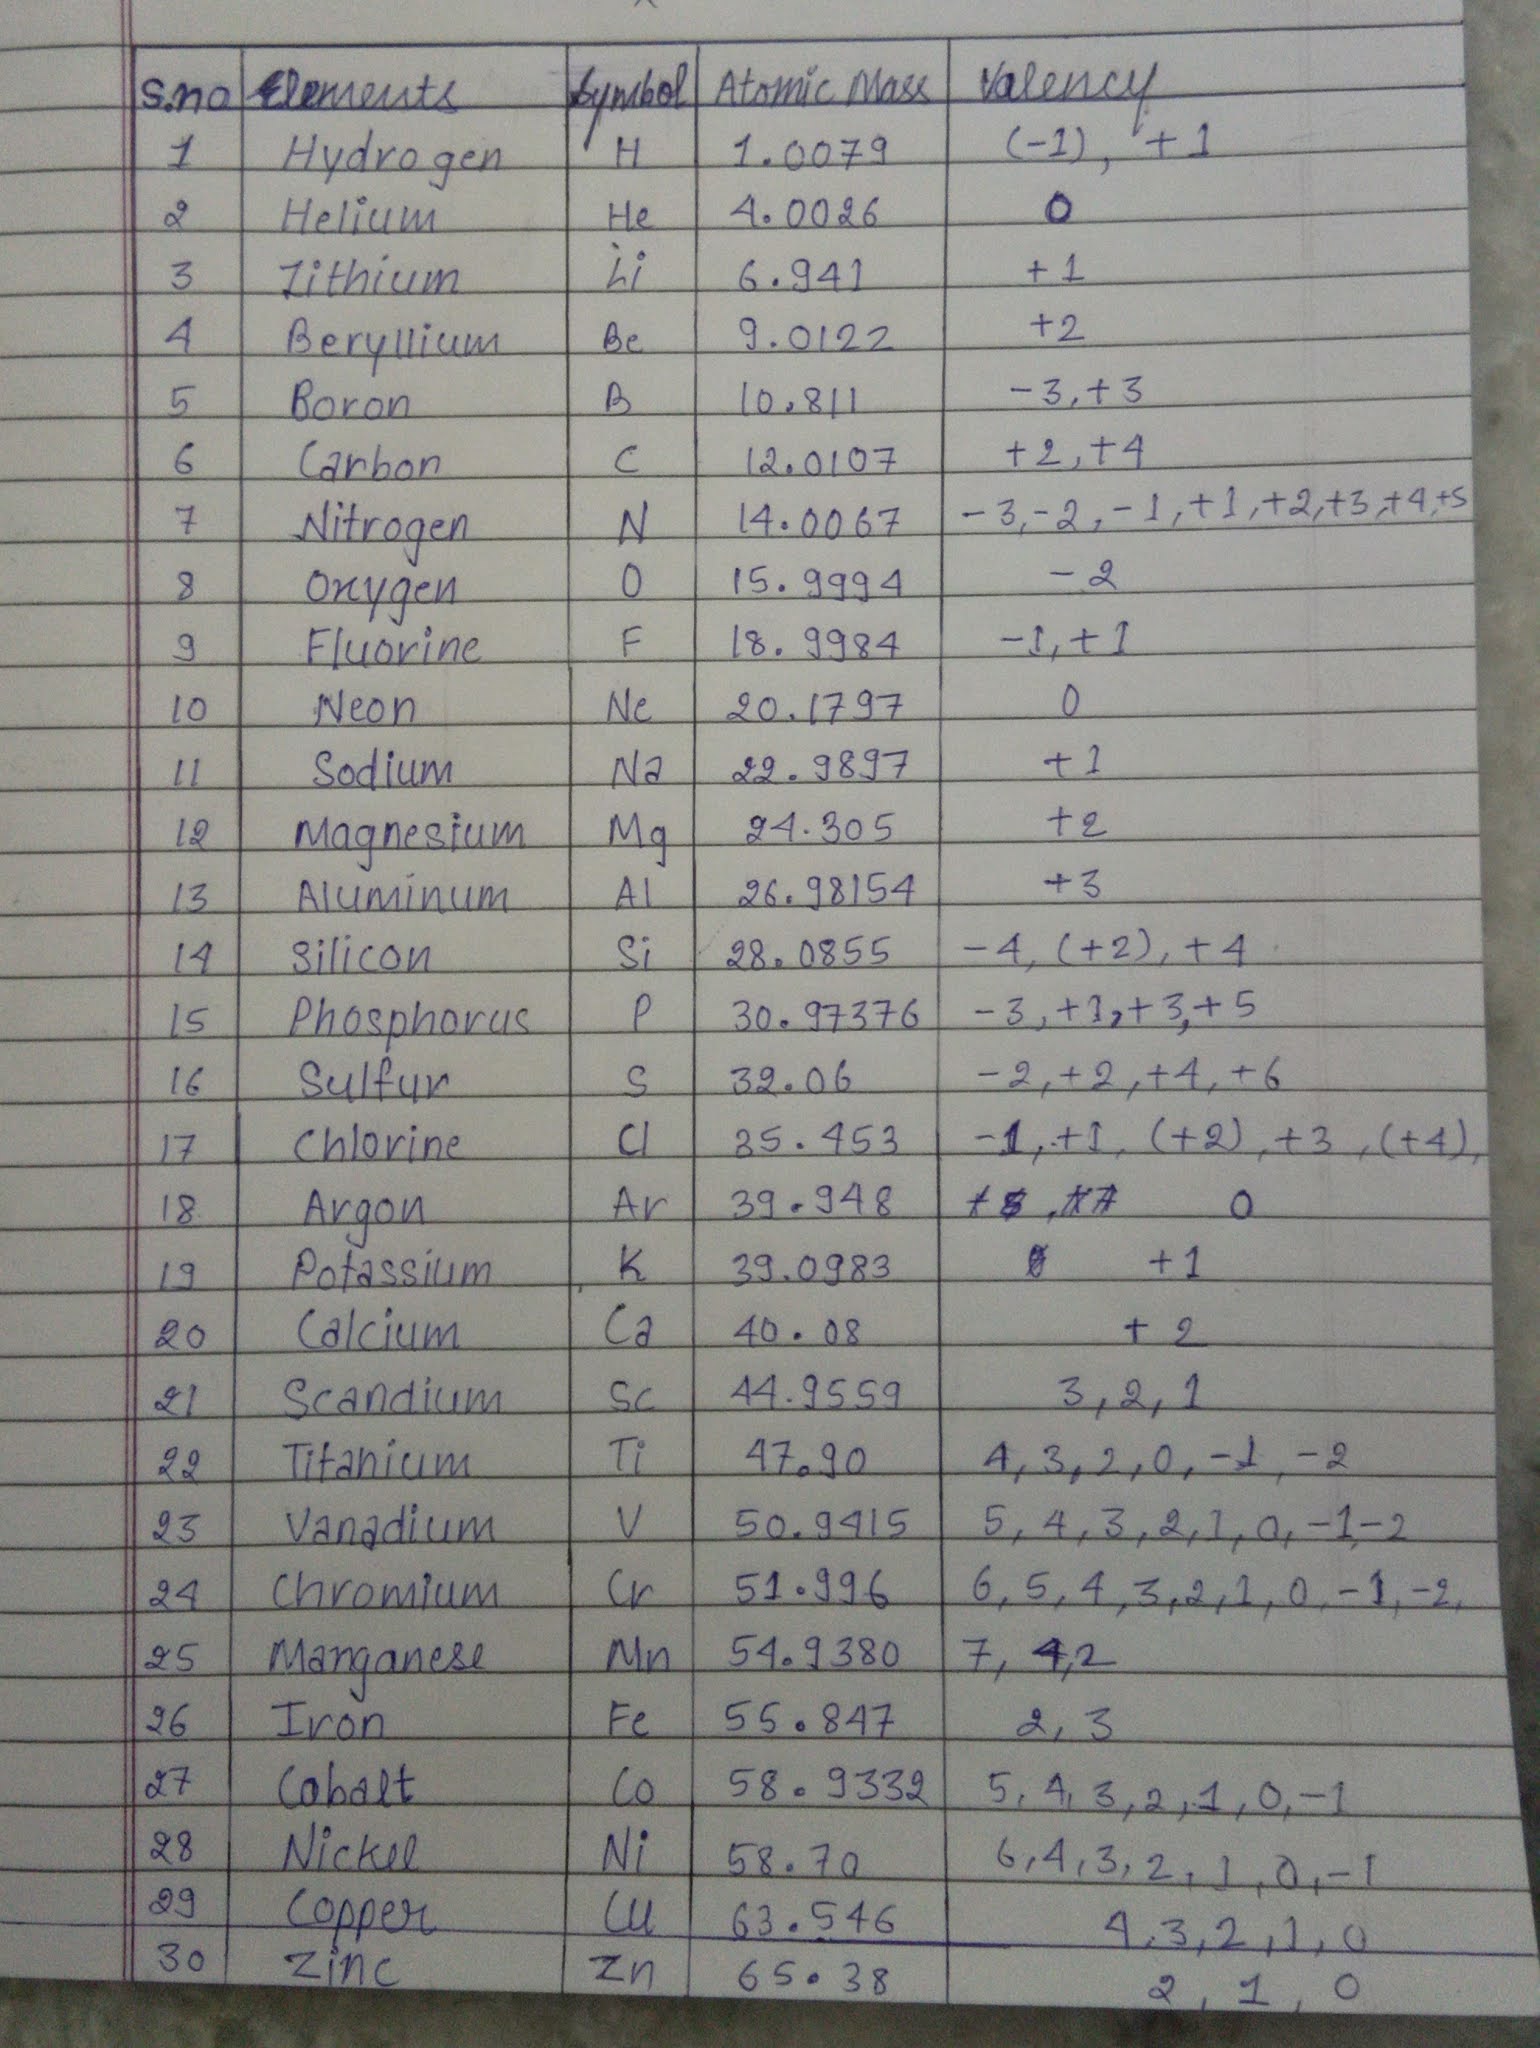 S.no Elements Symbol Atomic Mass Valency
1 Hydrogen H 1.0079 (-1), +1
2 Helium He 4.0026 0
3 Lithium Li 6.941 +1
4 Beryllium Be 9.0122 +2
5 Boron B 10.811 -3,+3
6 Carbon C 12.0107 +2,+4
7 Nitrogen N 14.0067 -3,-2,-1,+1,+2,+3,+4,+5
8 Oxygen O 15.9994 -2
9 Fluorine F 18.9984 -1,+1
10 Neon Ne 20.1797 0
11 Sodium Na 22.9897 +1
12 Magnesium Mg 24.305 +2
13 Aluminum Al 26.98154 +3
14 Silicon Si 28.0855 -4, (+2), +4
15 Phosphorus P 30.97376 -3,+1,+3,+5
16 Sulfur S 32.06 -2,+2,+4,+6
17 Chlorine Cl 35.453 -1,+1, (+2), +3, (+4),
18 Argon Ar 39.948 0
19 Potassium K 39.0983 +1
20 Calcium Ca 40.08 +2
21 Scandium Sc 44.9559 3,2,1
22 Titanium Ti 47.90 4,3,2,0,-1,-2
23 Vanadium V 50.9415 5,4,3,2,1,0,-1-2
24 Chromium Cr 51.996 6,5,4,3,2,1,0,-1,-2,
25 Manganese Mn 54.9380 7, 4,2
26 Iron Fe 55.847 2,3
27 Cobalt Co 58.9332 5,4,3,2,1,0,-1
28 Nickel Ni 58.70 6,4,3,2,1,0,-1
29 Copper Cu 63.546 4,3,2,1,0
30 Zinc Zn 65.38 2,1,0